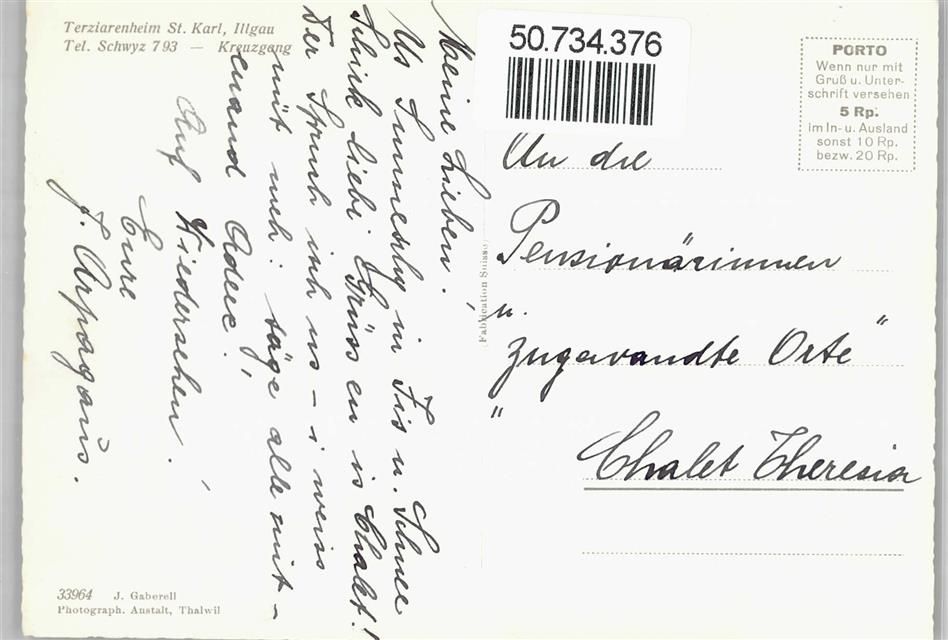 Terziarenheim St. Karl, Illgau
Tel. Schwyz 7 93 — Kreuzgang
Meine Lieben!
Us Sunneschy in Fis u. Schnee
Schick liebi Grüss en is Chalet!
Der Spruch isch us – i weiss
nüt meh! säge alle mit-
enand Adee!
Auf Wiedersehen.
Eure
J. Arpagaus.
50.734.376
PORTO
Wenn nur mit
Gruß u. Unter-
schrift versehen
5 Rp.
im In- u. Ausland
sonst 10 Rp.
bezw. 20 Rp.
An die
Pensionärinnen
u.
zugewandte Orte"
" Chalet Theresia
Fabrication Suisse
33964 J. Gaberell
Photograph. Anstalt, Thalwil